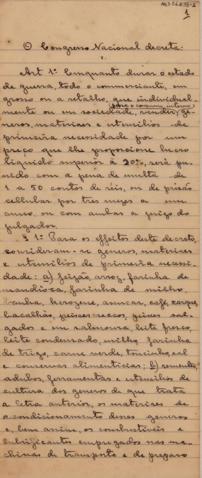 1
O Congresso Nacional decreta:
Art 1º Emquanto durar o estado
de guerra, todo o commerciante, em
grosso ou a retalho, que individual-
para o consumo interno
mente ou em sociedade, vender, ge-
neros, materias e utensilios de
primeira necessidade por um
preço que lhe proporcione lucro
liquido superior a 20%, será pu-
nido com a pena de multa de
1 a 50 contos de réis, ou de prisão
cellular por tres mezes a um
anno, ou com ambas a juizo do
julgador.
§ 1º Para os effeitos deste decreto,
consideram-se generos, materias
e utensilios de primeira necessi-
dade: a) feijão, arroz, farinha de
mandioca, farinha de milho,
banha, kerozene, assucar, café, xarque,
bacalhão, peixes seccos, peixes sal-
gados e em salmoura, leite fresco,
leite condensado, milho, farinha
de trigo, carne verde, toucinho, sal
e conservas alimenticias; b) sementes,
adubos, ferramentas e utensilios de
cultura dos generos de que trata
a letra anterior, os materiaes de
acondicionamento desses generos
e, bem assim, os combustiveis e
lubrificantes empregados nas ma-
chinas de transporte e de preparo